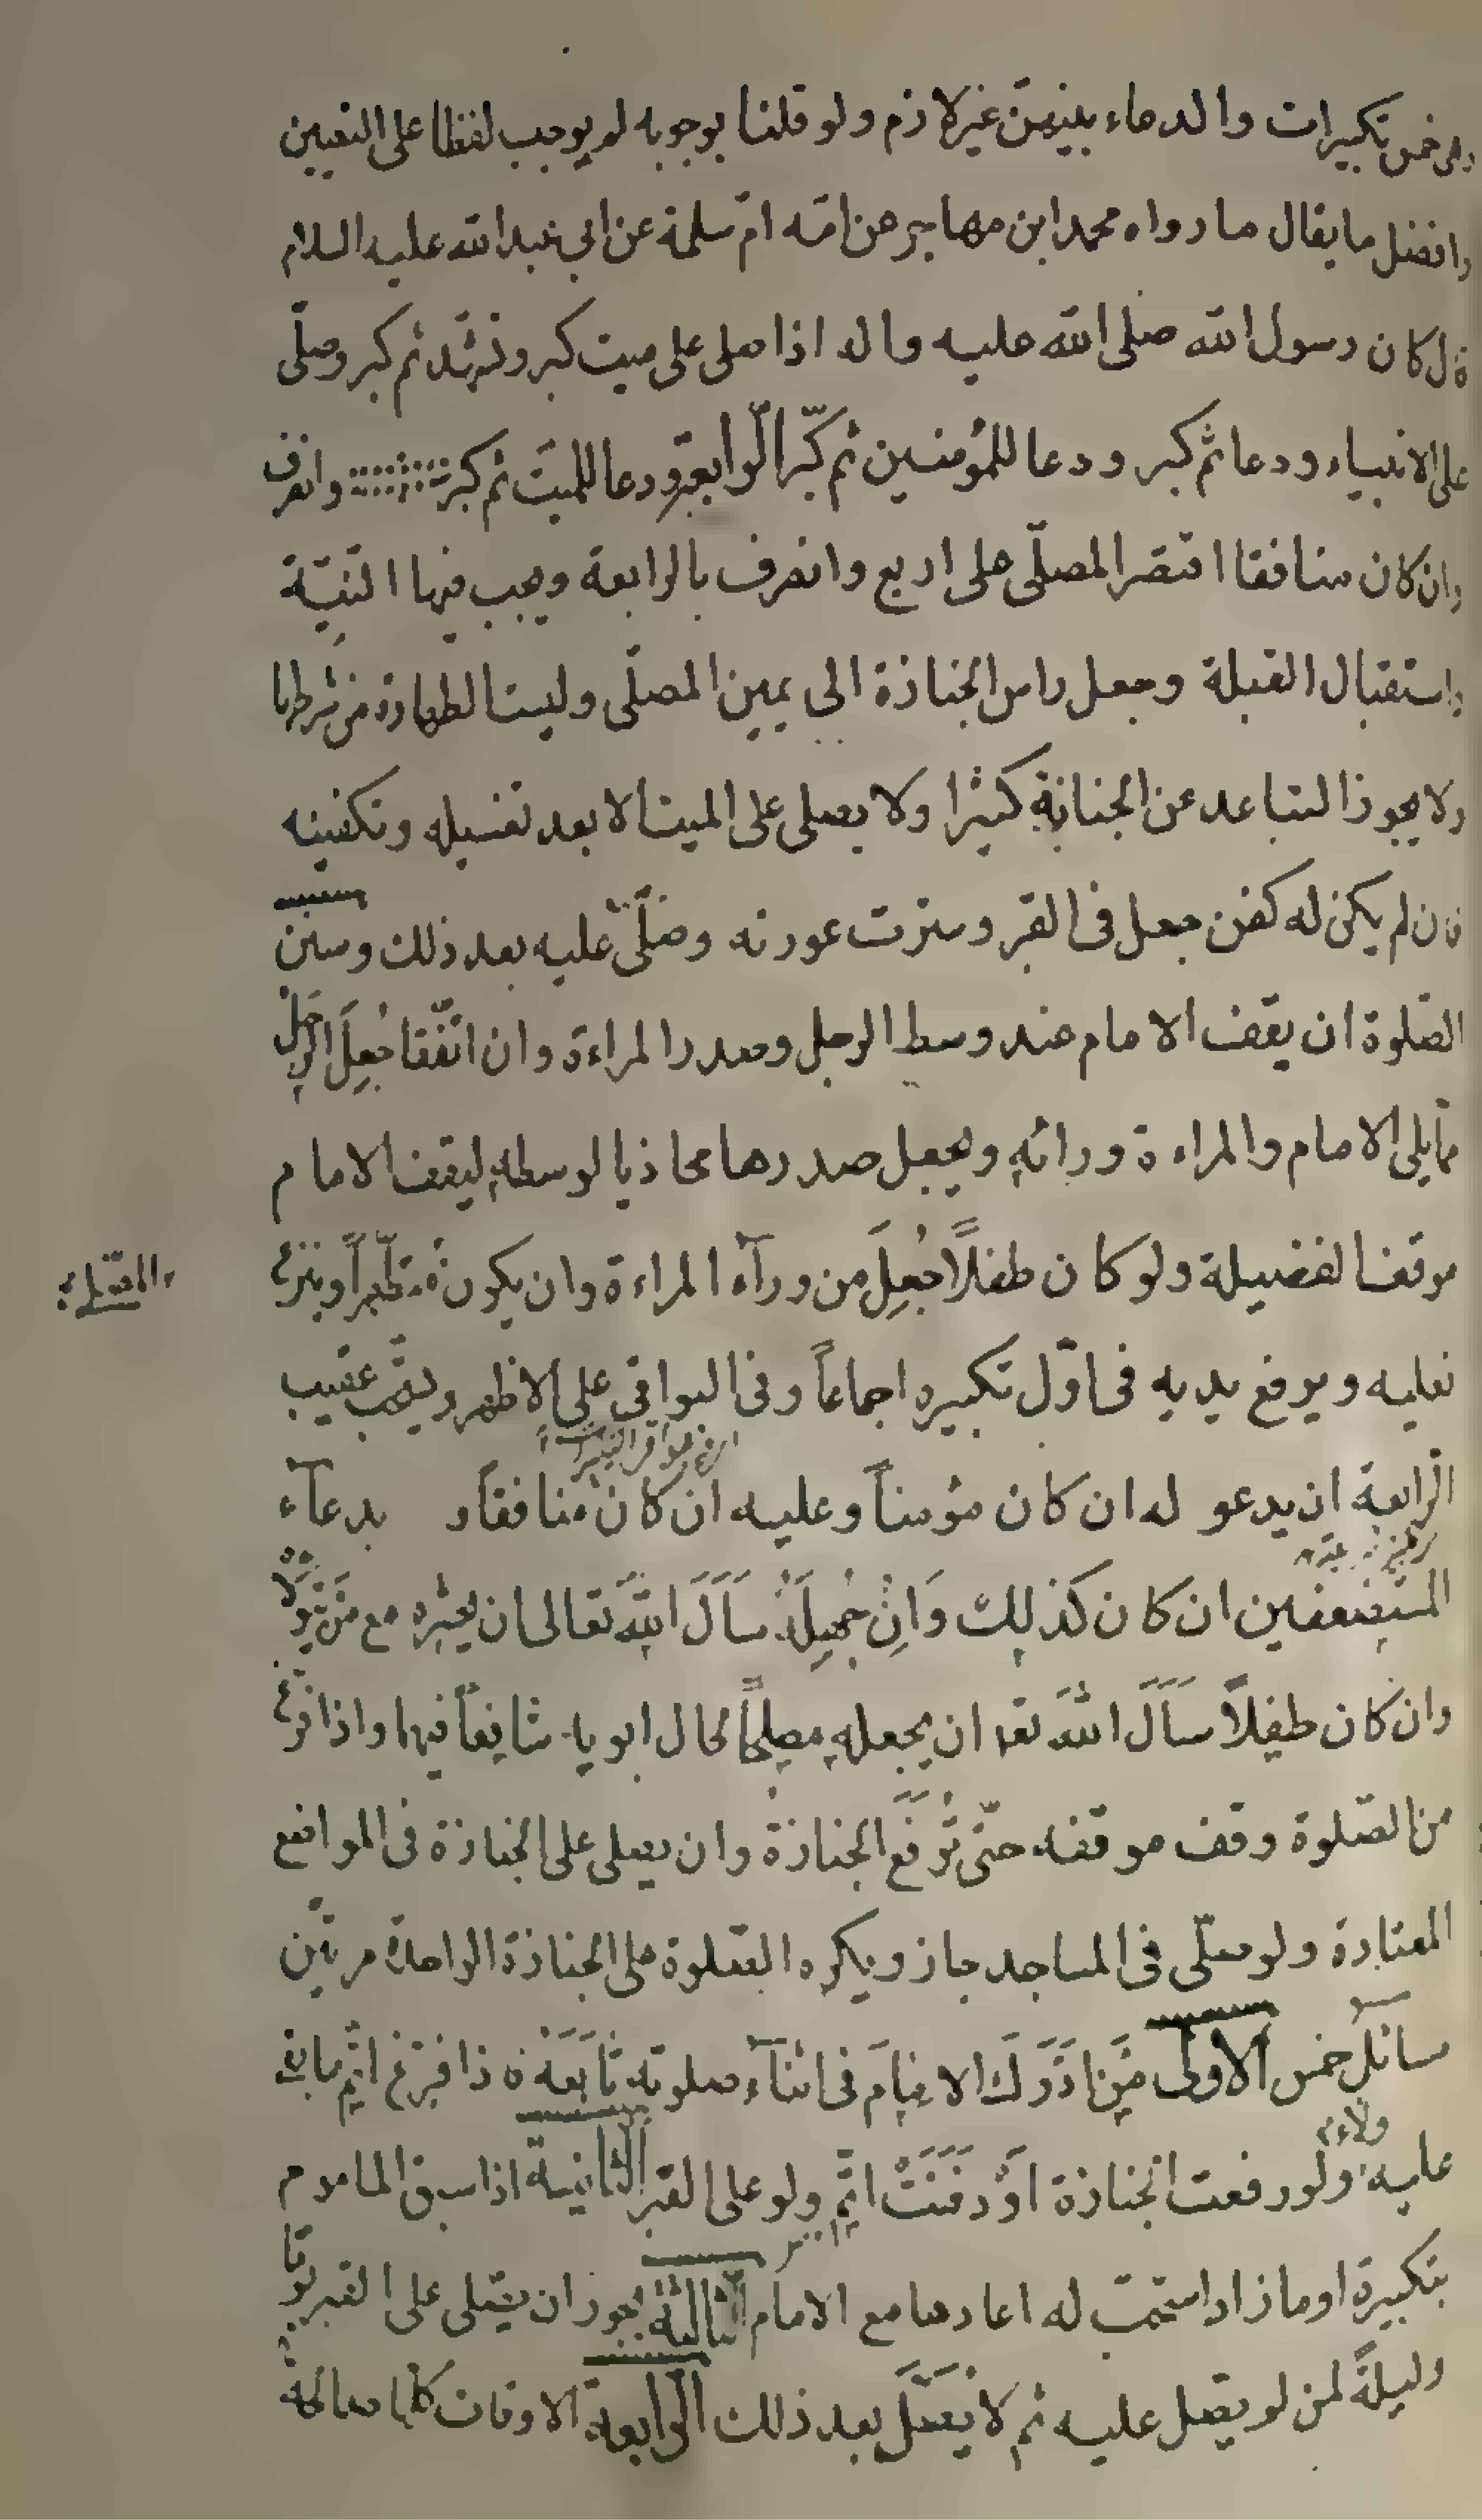 وهي خمس تكبيرات والدعاء بينهن غير لازم ولو قلنا بوجوبه لم يوجب لفظا على التعيين
وافضل ما يقال ما رواه محمد ابن مهاجر عن امّه امّ سلمة عن ابي عبد الله عليه السلام
قال كان رسول الله صلى الله عليه واله اذا صلى على ميت كبر وتشهد ثم كبر وصلّى
على الانبياء ودعا ثم كبر ودعا للمؤمنين ثم كبّر الرّابعة ودعا للميّت ثم كبر وانصرف
وان كان منافقا اقتصر المصلّى على اربع وانصرف بالرابعة ويجب فيها النيّة
واستقبال القبلة وجعل راس الجنازة الى يمين المصلّى وليست الطهارة من شرطها
ولا يجوز التباعد عن الجنازة كثيرا ولا يصلى على الميت الا بعد تغسيله وتكفينه
فان لم يكن له كفن جعل في القبر وسترت عورته وصلّى عليه بعد ذلك وسنن
الصّلوة ان يقف الامام عند وسط الرجل وصدر المراءة وان اتّفقا جُعِلَ الرجل
ممّا يلي الامام والمراءة ورائه ويجعل صدرها محاذيا لوسطه ليقف الامام
موقف الفضيلة ولو كان طفلاً جُعِلَ من ورآء المراءة وان يكون متطهّراً وينزع
نعليه ويرفع يديه في اوّل تكبيره اجماعاً وفي البواقي على الاظهر ويستحب عقيب
الرّابعة ان يدعو له ان كان مؤمناً وعليه ان كان منافقاً و بدعآء
المستضعفين ان كان كذلك وَاِنْ جُهِلَ سَاَلَ اللّهَ تعالى ان يحشره مع من يتولاه
وان كان طفلاً سَاَلَ اللهَ تعا ان يجعله مصلحاً لحال ابويه شافعاً فيهما واذا فرغ
من الصّلوة وقف موقفه حتّى تُرفَعَ الجنازة وان يصلى على الجنازة في المواضع
المعتادة ولو صلّى في المساجد جاز ويكره الصّلوة على الجنازة الواحدة مرتين
مسائل خمس الاولى مَن اَدْرَكَ الامَامَ في اثنآء صلوته تابَعَهُ فاذا فرغ اتم ما بقى
عليه ولاء ولو رفعت الجنازة اَوْ دفنَتْ اتم ولو على القبر الثانية اذا سبق الماموم
بتكبيرة او ما زاد استحبّ له اعادها مع الامام الثالثة يجوز ان يصلى على القبر يوما
وليلةً لمن لم يصل عليه ثم لا يصَلَّ بعد ذلك الرابعة الاوقات كلها صالحة